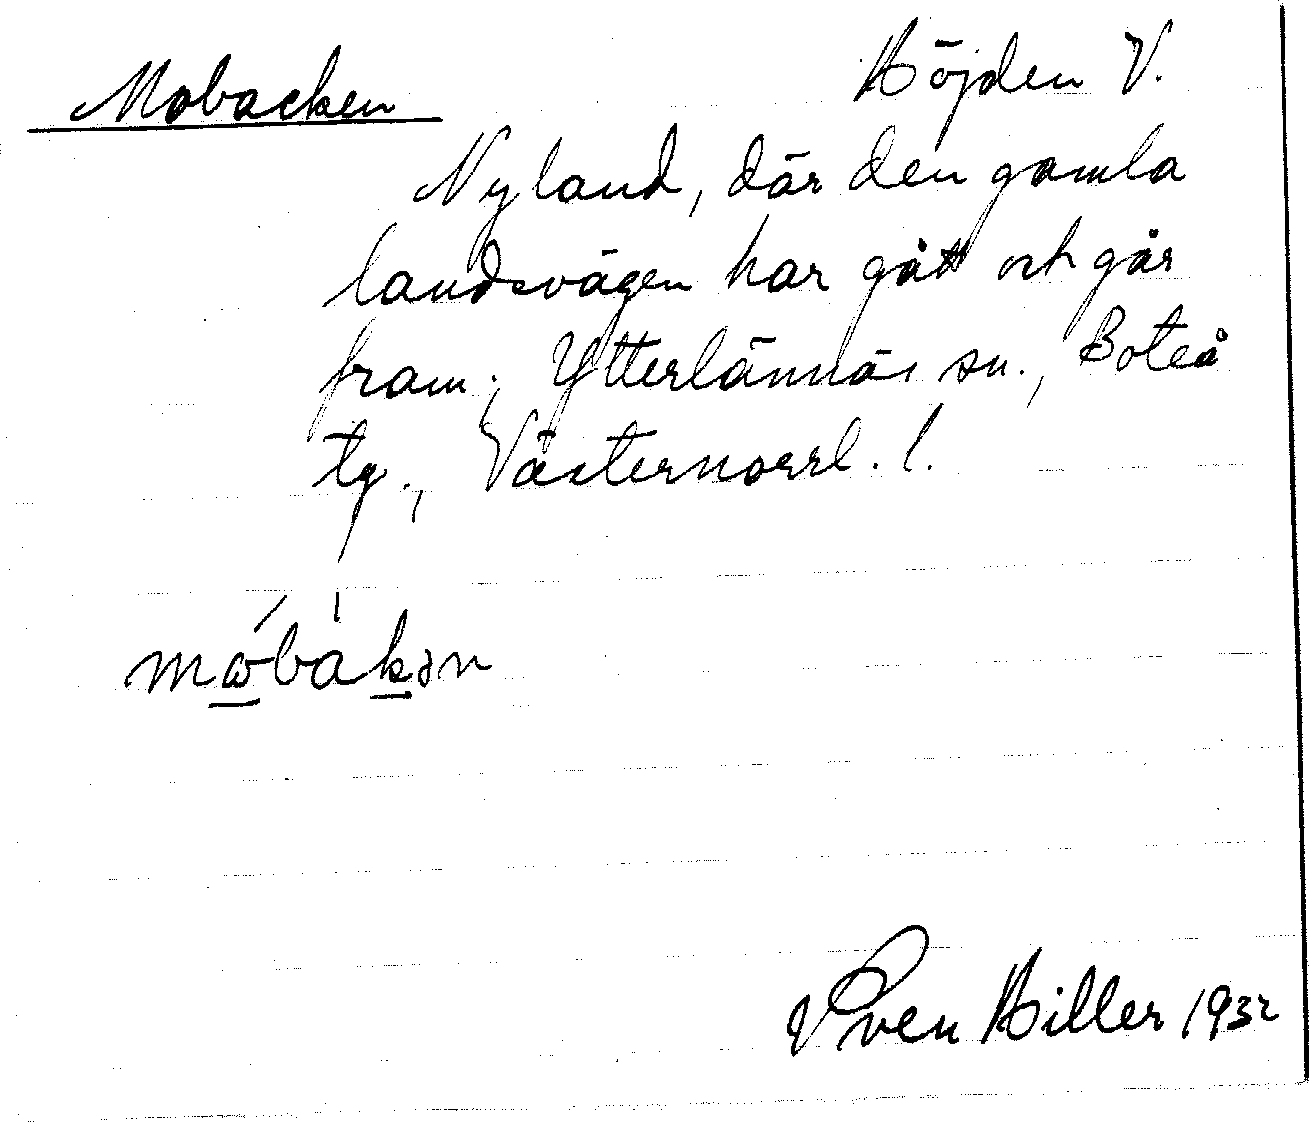 Mobacken
Höjden V.
Nyland, där den gamla
landsvägen har gått och går
fram; Ytterlännäs sn., Boteå
tg., Västernorrl. l.
mωbakən
Sven Hiller 1932